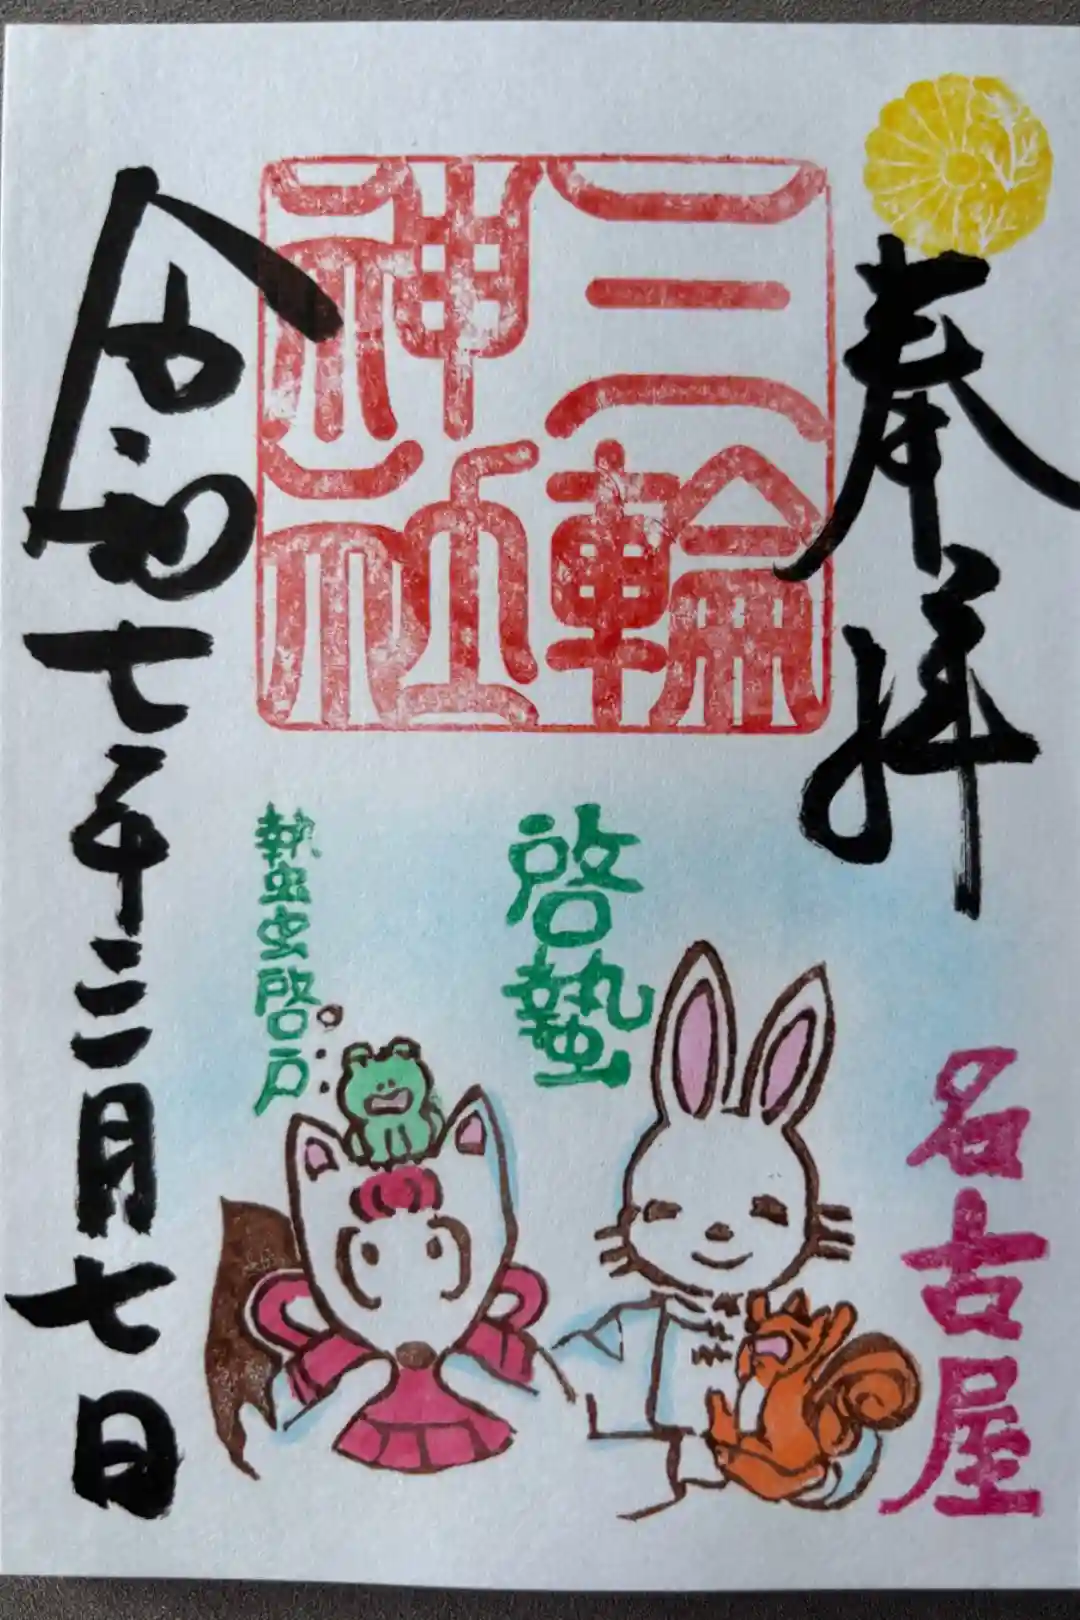 奉拝
三輪
神社
名古屋
啓蟄
蟄虫啓戸
令和七年三月七日